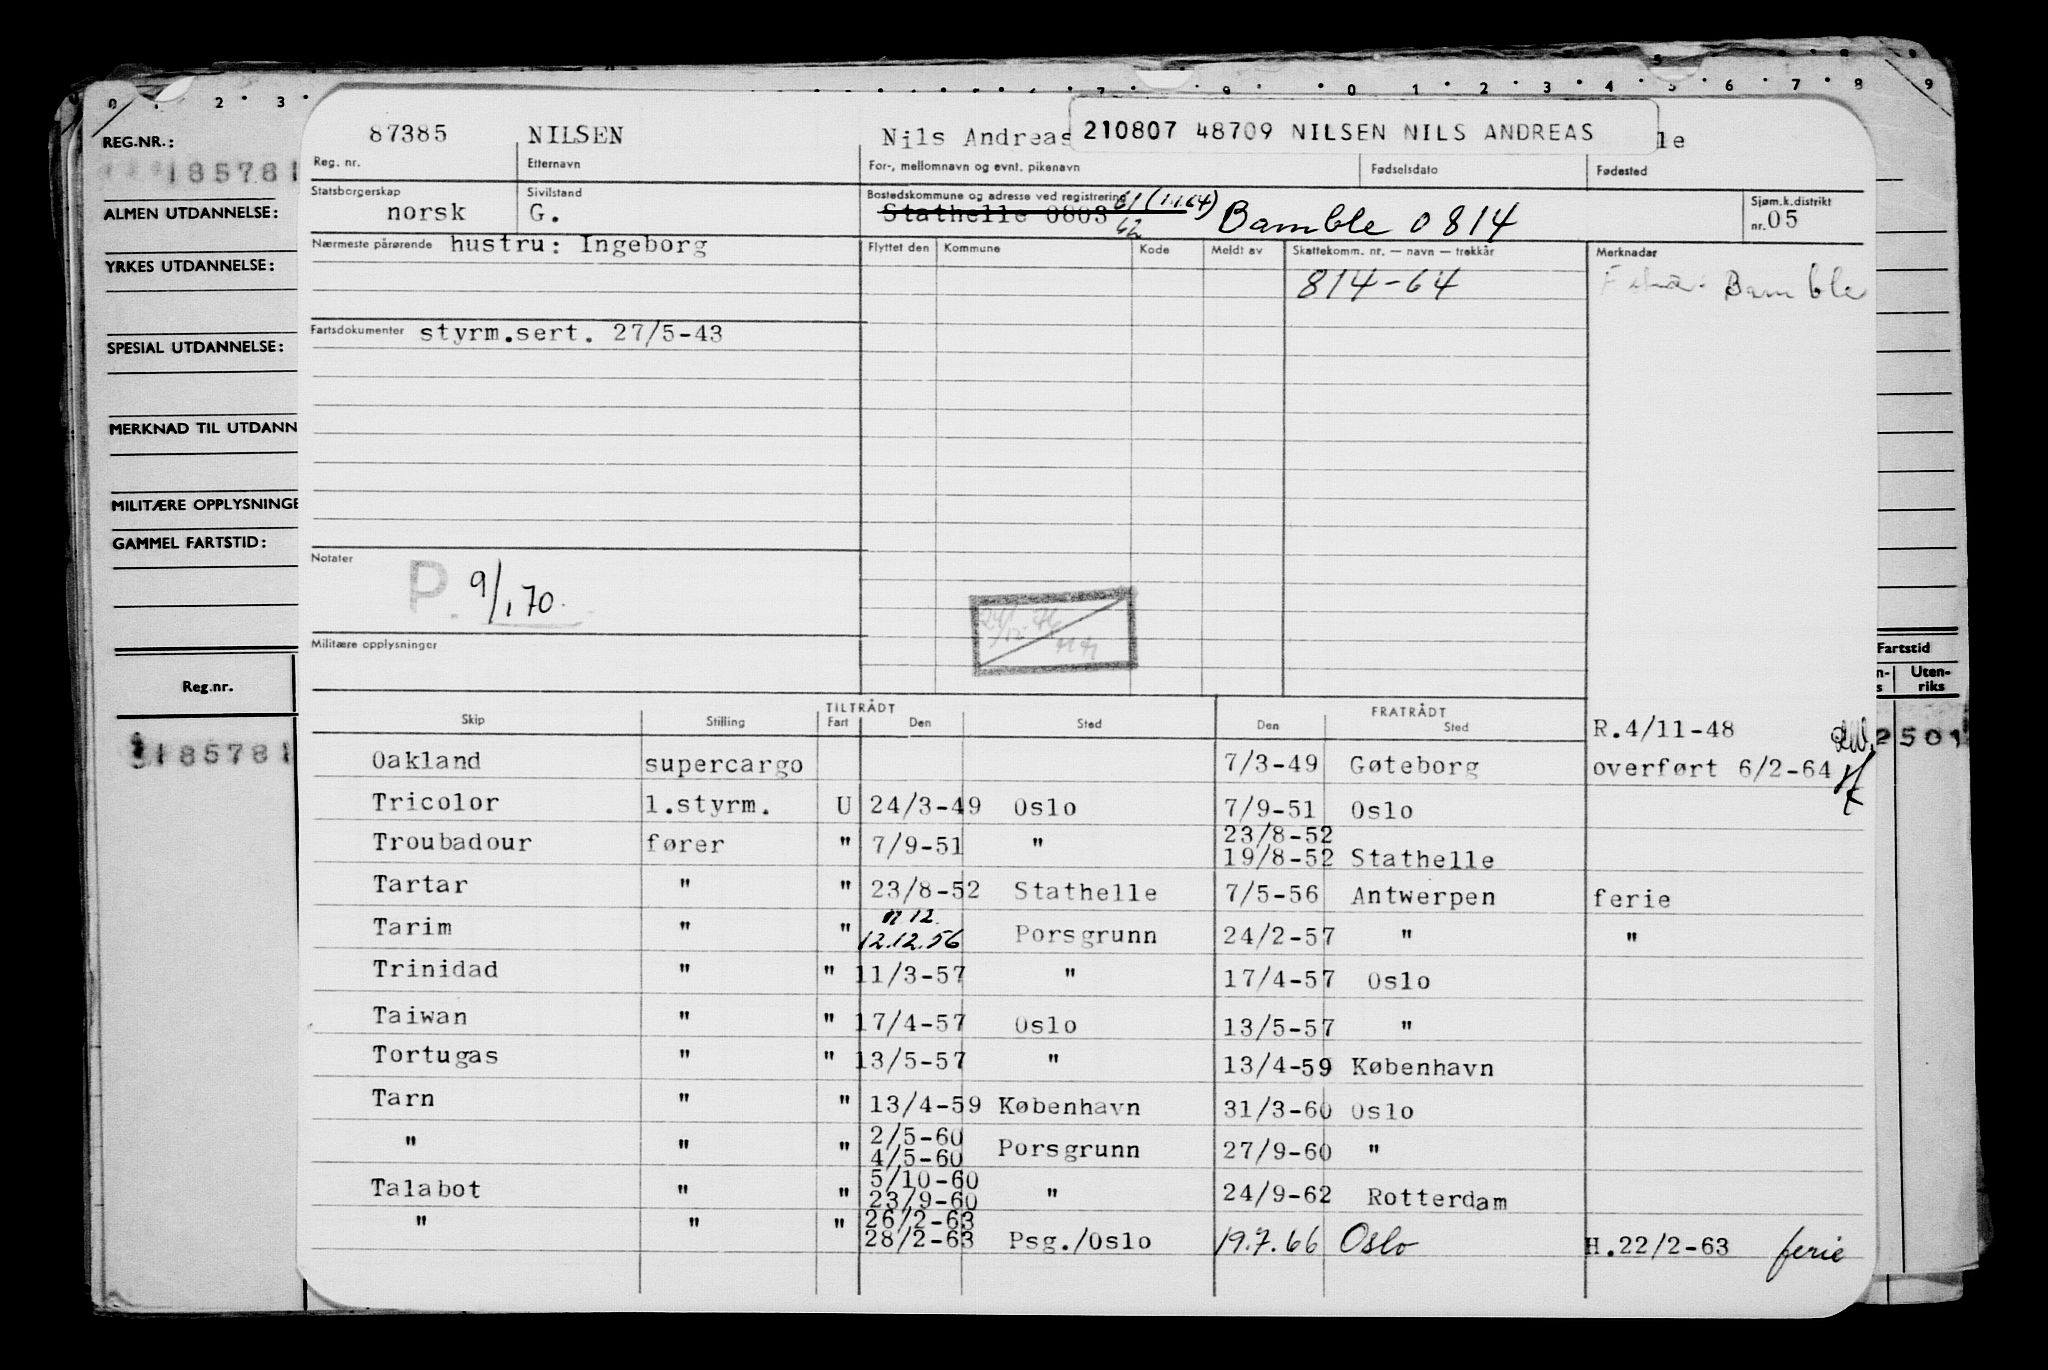 0 2 3 7 9 0 1 2 3 4 5 6 7 8 9
REG.NR.:
185781
ALMEN UTDANNELSE:
YRKES UTDANNELSE:
SPESIAL UTDANNELSE:
MERKNAD TIL UTDANN
MILITÆRE OPPLYSNINGE
GAMMEL FARTSTID:
Reg.nr.
185781
87385 NILSEN Nils Andreas 210807 48709 NILSEN NILS ANDREAS le
Reg. nr. Etternavn For-, mellomnavn og evnt. pikenavn Fødselsdato Fødested
Statsborgerskap Sivilstand Bostedskommune og adresse ved registrering Sjøm.k.distrikt
norsk G. Stathelle 0803 61/62 (1.1.64) Bamble 0814 nr. 05
Nærmeste pårørende hustru: Ingeborg Flyttet den Kommune Kode Meldt av Skattekomm. nr. — navn — trekkår Merknader
814-64 Bamble
Fartsdokumenter styrm.sert. 27/5-43
Notater
P 9/1 70.
Militære opplysninger
Fartstid
n-s Uten-riks
TILTRÅDT FRATRÅDT
Skip Stilling Fart Den Sted Den Sted
R.4/11-48
2501
Oakland supercargo 7/3-49 Gøteborg overført 6/2-64
Tricolor 1.styrm. U 24/3-49 Oslo 7/9-51 Oslo
Troubadour fører " 7/9-51 " 23/8-52
19/8-52 Stathelle
Tartar " " 23/8-52 Stathelle 7/5-56 Antwerpen ferie
Tarim " " 12.12.56 Porsgrunn 24/2-57 " "
Trinidad " " 11/3-57 " 17/4-57 Oslo
Taiwan " " 17/4-57 Oslo 13/5-57 "
Tortugas " " 13/5-57 " 13/4-59 København
Tarn " " 13/4-59 København 31/3-60 Oslo
" " " 2/5-60
4/5-60 Porsgrunn 27/9-60 "
Talabot " " 5/10-60
23/9-60 " 24/9-62 Rotterdam
" " " 26/2-63
28/2-63 Psg./Oslo 19.7.66 Oslo H.22/2-63 ferie